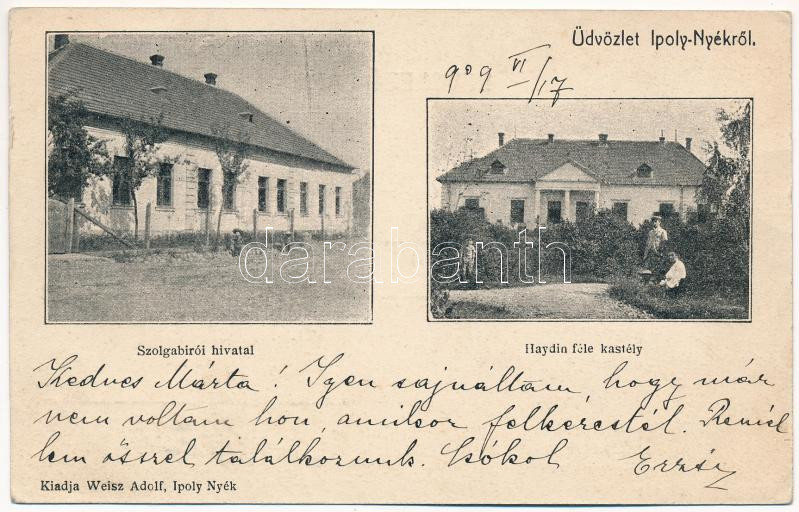 Üdvözlet Ipoly-Nyékről.
909 VI/17
darabanth
Szolgabirói hivatal
Haydin féle kastély
Kedves Márta! Igen sajnáltam, hogy már
nem voltam hon, amikor felkerestél. Remél-
lem ősszel találkozunk. Csókol Erzsi
Kiadja Weisz Adolf, Ipoly Nyék